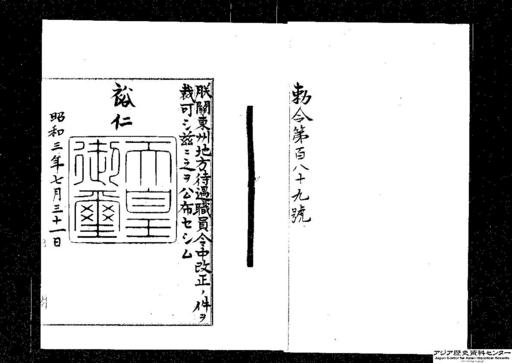 勅令第百八十九號
朕關東州地方待遇職員令中改正ノ件ヲ
裁可シ茲ニ之ヲ公布セシム
裕仁
天皇
御璽
昭和三年七月三十一日
アジア歴史資料センター
Japan Center for Asian Historical Records